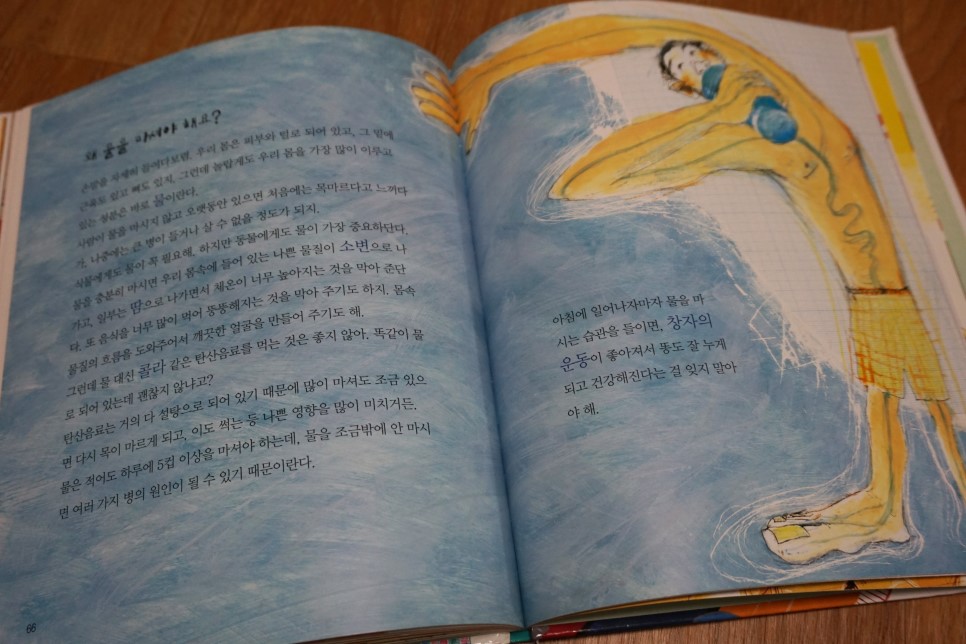 왜 물을 마셔야 해요?
손발을 자세히 들여다보렴. 우리 몸은 피부와 털로 되어 있고, 그 밑에
근육도 있고 뼈도 있지. 그런데 놀랍게도 우리 몸을 가장 많이 이루고
있는 성분은 바로 물이란다.
사람이 물을 마시지 않고 오랫동안 있으면 처음에는 목마르다고 느끼다
가, 나중에는 큰 병이 들거나 살 수 없을 정도가 되지.
식물에게도 물이 꼭 필요해. 하지만 동물에게도 물이 가장 중요하단다.
물을 충분히 마시면 우리 몸속에 들어 있는 나쁜 물질이 소변으로 나
가고, 일부는 땀으로 나가면서 체온이 너무 높아지는 것을 막아 준단
다. 또 음식을 너무 많이 먹어 뚱뚱해지는 것을 막아 주기도 하지. 몸속
물질의 흐름을 도와주어서 깨끗한 얼굴을 만들어 주기도 해.
그런데 물 대신 콜라 같은 탄산음료를 먹는 것은 좋지 않아. 똑같이 물
로 되어 있는데 괜찮지 않냐고?
탄산음료는 거의 다 설탕으로 되어 있기 때문에 많이 마셔도 조금 있으
면 다시 목이 마르게 되고, 이도 썩는 등 나쁜 영향을 많이 미치거든.
물은 적어도 하루에 5컵 이상을 마셔야 하는데, 물을 조금밖에 안 마시
면 여러 가지 병의 원인이 될 수 있기 때문이란다.
66
아침에 일어나자마자 물을 마
시는 습관을 들이면, 창자의
운동이 좋아져서 똥도 잘 누게
되고 건강해진다는 걸 잊지 말아
야 해.